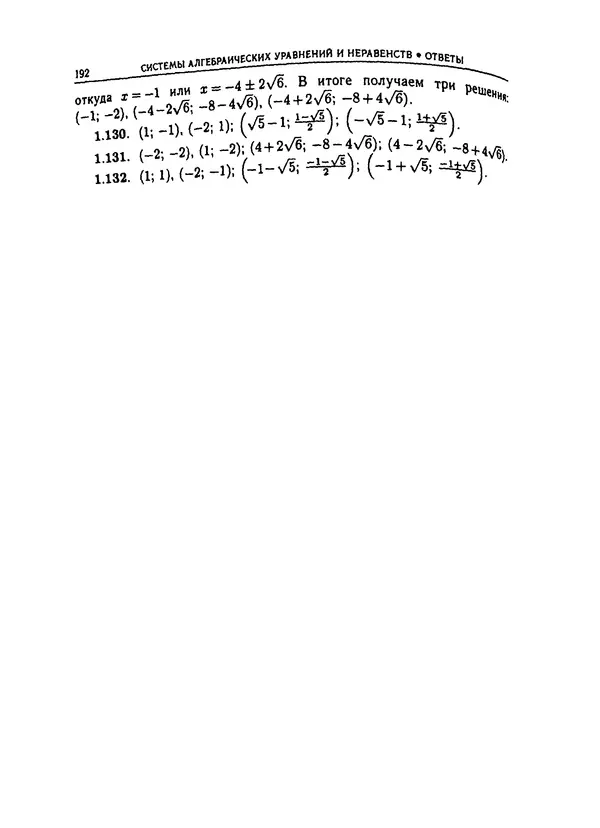 192 СИСТЕМЫ АЛГЕБРАИЧЕСКИХ УРАВНЕНИЙ И НЕРАВЕНСТВ • ОТВЕТЫ
откуда x = −1 или x = −4 ± 2√6. В итоге получаем три решения:
(−1; −2), (−4 − 2√6; −8 − 4√6), (−4 + 2√6; −8 + 4√6).
1.130. (1; −1), (−2; 1); (√5 − 1; (1−√5)/2); (−√5 − 1; (1+√5)/2).
1.131. (−2; −2), (1; −2); (4 + 2√6; −8 − 4√6); (4 − 2√6; −8 + 4√6).
1.132. (1; 1), (−2; −1); (−1 − √5; (−1−√5)/2); (−1 + √5; (−1+√5)/2).